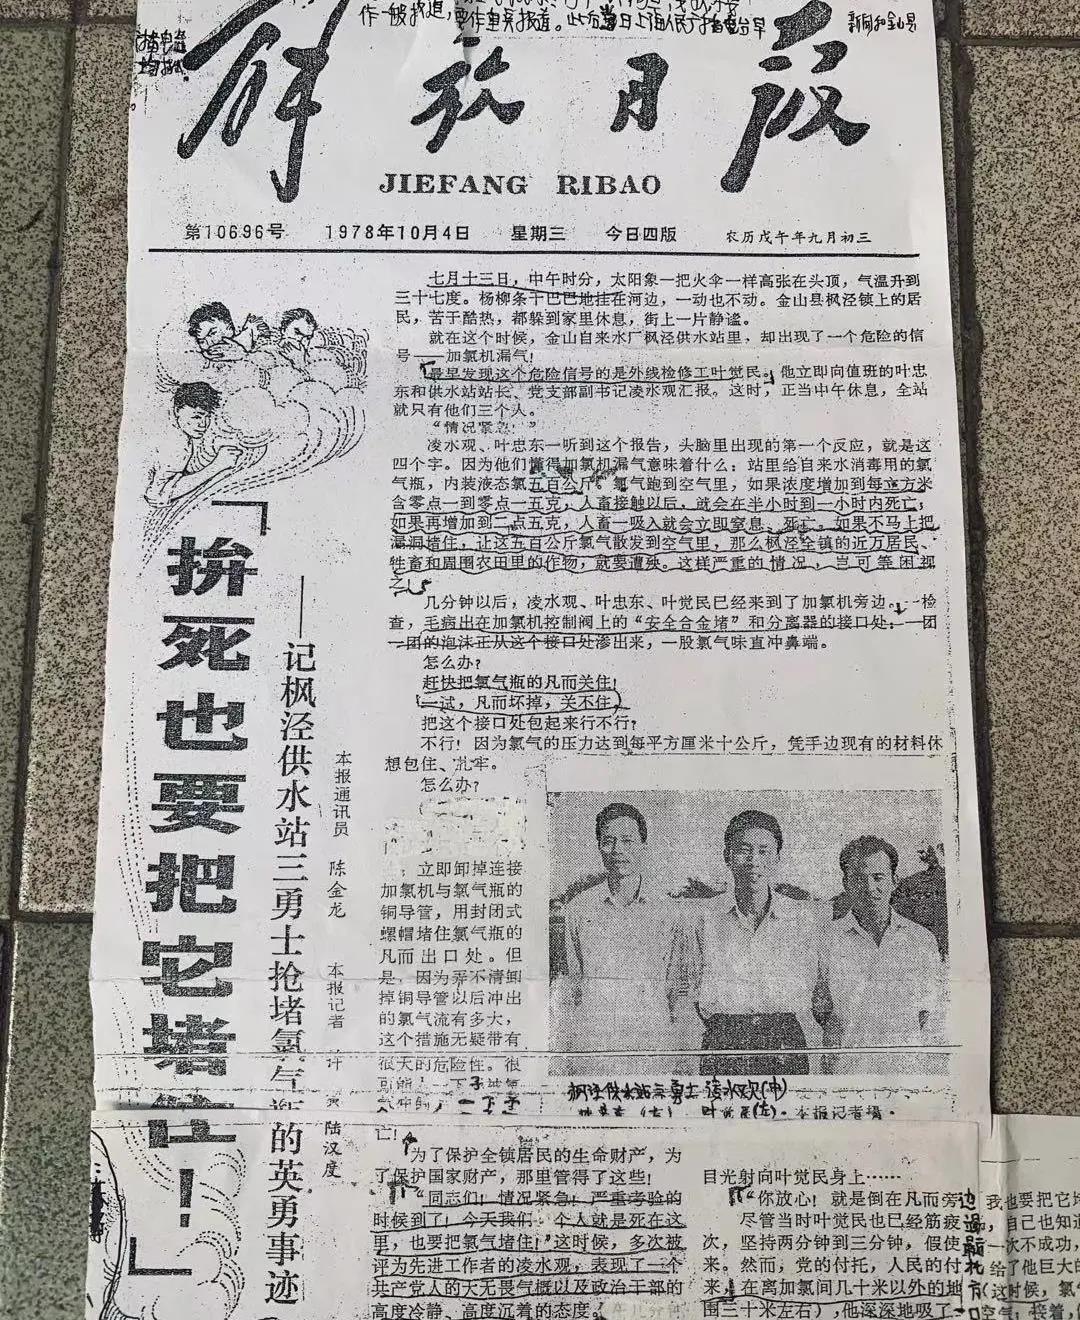 作一般报道，要作重头报道。此文当日上海人民广播电台早
新闻和金山县
解放日报
JIEFANG RIBAO
第10696号 1978年10月4日 星期三 今日四版 农历戊午年九月初三
「拚死也要把它堵住！」
——记枫泾供水站三勇士抢堵氯气瓶的英勇事迹
本报通讯员 陈金龙 本报记者 许 陆汉度
七月十三日，中午时分，太阳象一把火伞一样高张在头顶，气温升到
三十七度。杨柳条干巴巴地挂在河边，一动也不动。金山县枫泾镇上的居
民，苦于酷热，都躲到家里休息，街上一片静谧。
就在这个时候，金山自来水厂枫泾供水站里，却出现了一个危险的信
号——加氯机漏气！
最早发现这个危险信号的是外线检修工叶觉民。他立即向值班的叶忠
东和供水站站长、党支部副书记凌水观汇报。这时，正当中午休息，全站
就只有他们三个人。
“情况紧急！”
凌水观、叶忠东一听到这个报告，头脑里出现的第一个反应，就是这
四个字。因为他们懂得加氯机漏气意味着什么：站里给自来水消毒用的氯
气瓶，内装液态氯五百公斤。氯气跑到空气里，如果浓度增加到每立方米
含零点一到零点一五克，人畜接触以后，就会在半小时到一小时内死亡；
如果再增加到二点五克，人畜一吸入就会立即窒息、死亡。如果不马上把
漏洞堵住，让这五百公斤氯气散发到空气里，那么枫泾全镇的近万居民、
牲畜和周围农田里的作物，就要遭殃。这样严重的情况，岂可等闲视
之！
几分钟以后，凌水观、叶忠东、叶觉民已经来到了加氯机旁边。一检
查，毛病出在加氯机控制阀上的“安全合金堵”和分离器的接口处：一团
一团的泡沫正从这个接口处渗出来，一股氯气味直冲鼻端。
怎么办？
赶快把氯气瓶的凡而关住！
一试，凡而坏掉，关不住！
把这个接口处包起来行不行？
不行！因为氯气的压力达到每平方厘米十公斤，凭手边现有的材料休
想包住、扎牢。
怎么办？
立即卸掉连接
加氯机与氯气瓶的
铜导管，用封闭式
螺帽堵住氯气瓶的
凡而出口处。但
是，因为弄不清卸
掉铜导管以后冲出
的氯气流有多大，
这个措施无疑带有
很大的危险性。很
亡！
枫泾供水站三勇士 凌水观(中)
叶觉民(左)。本报记者摄
为了保护全镇居民的生命财产，为
了保护国家财产，那里管得了这些！
“同志们！情况紧急！严重考验的
时候到了！今天我们一个人就是死在这
里，也要把氯气堵住！”这时候，多次被
评为先进工作者的凌水观，表现了一个
共产党人的大无畏气概以及政治干部的
高度冷静、高度沉着的态度。
目光射向叶觉民身上……
“你放心！就是倒在凡而旁边我也要把它堵
尽管当时叶觉民也已经筋疲，自己也知道
次，坚持两分钟到三分钟，假使一次不成功，
来。然而，党的付托，人民的付托给了他巨大的
来，在离加氯间几十米以外的地方（这时候，氯
围三十米左右），他深深地吸了一口空气，接着，